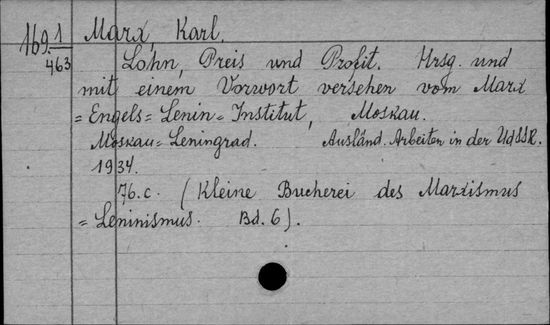 169.1
463
Marx, Karl.
Lohn, Preis und Profit. Hrsg. und
mit einem Vorwort versehen vom Marx
=Engels=Lenin=Institut, Moskau.
Moskau=Leningrad. Ausländ. Arbeiter in der UdSSR.
1934.
76.c. (Kleine Bucherei des Marxismus
=Leninismus. Bd. 6).